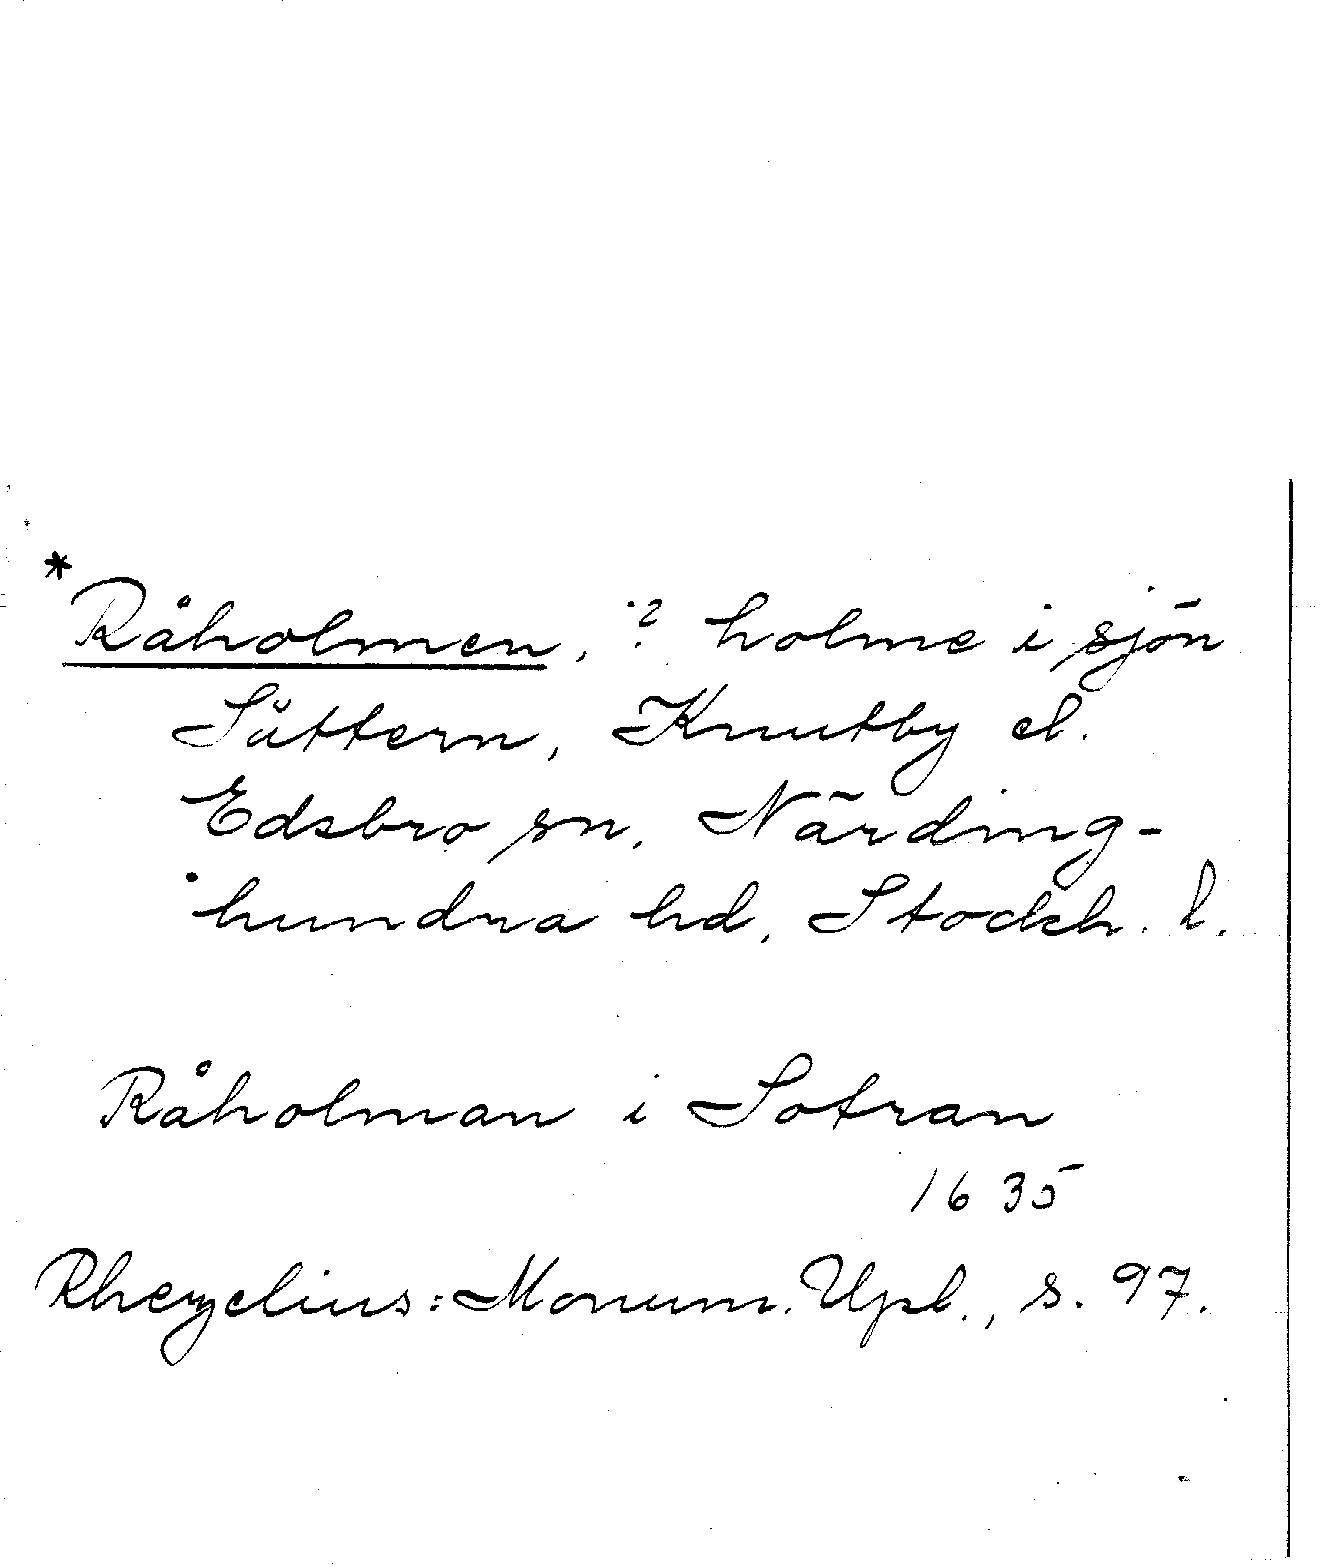 *Råholmen, ? holme i sjön
Såttern, Knutby el.
Edsbro sn, Närding-
hundra hd, Stockh. l.
Råholman i Sotran
1635
Rhezelius: Monum. Upl., s. 97.